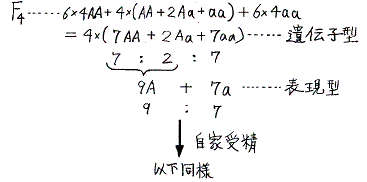 F₄……6×4AA+4×(AA+2Aa+aa)+6×4aa
=4×(7AA+2Aa+7aa)……遺伝子型
7 : 2 : 7
9A + 7a ……表現型
9 : 7
自家受精
以下同様